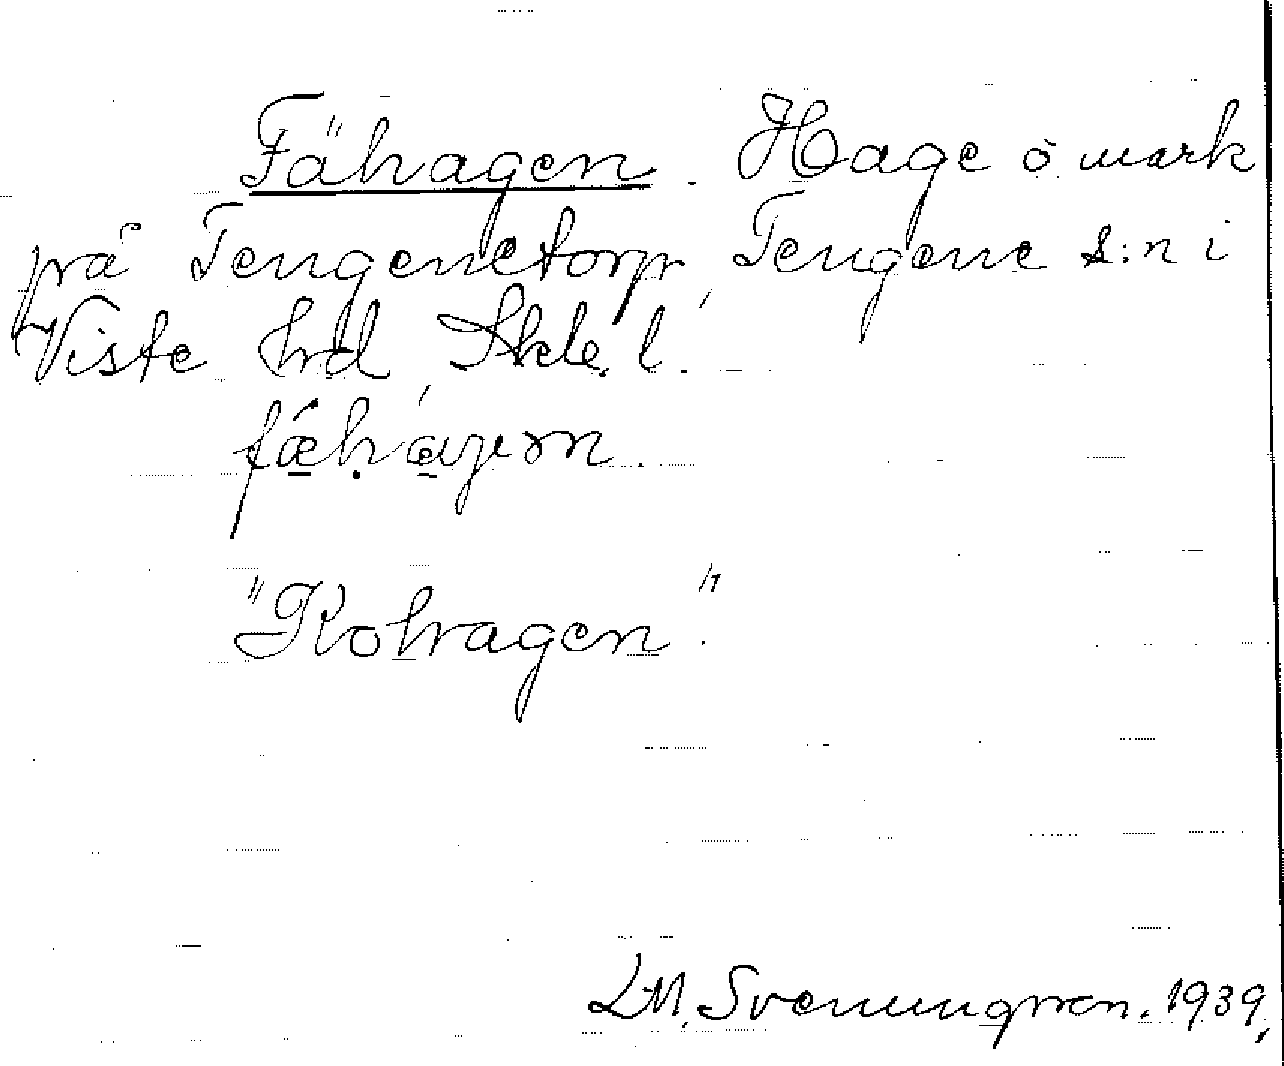 Fähagen. Hage o mark
på Tengenetorp, Tengene s:n i
Viste hrd, Skbl. l.
"Kohagen".
L M. Svenungsson. 1939.